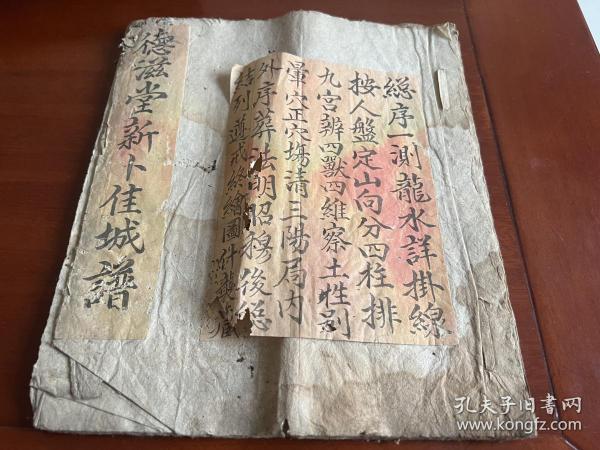 德滋堂新卜佳城譜
総序一測龍水詳掛線
按人盤定山向分四柱排
九宮辨四獸四維察土牲别
暈穴正穴塲清三陽局内
外序葬法明昭穆後総
結列遵戒終繪圖
孔夫子旧書网
www.kongfz.com